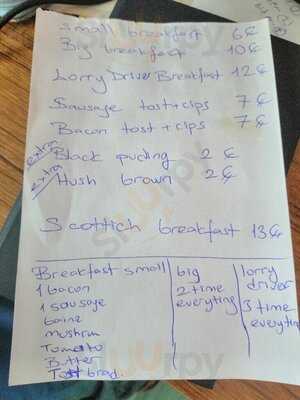 Small breakfast 6€
Big breakfast 10€
Lorry Driver Breakfast 12€
Sausage tost+clips 7€
Bacon tost+clips 7€
extra Black puding 2€
extra Hush brown 2€
Scottich breakfast 13€
Breakfast small
1 bacon
1 sousage
bainz
mushrum
Tomato
Butter
Tost bread.
big
2 time
everyting
lorry
driver
3 time
everyting